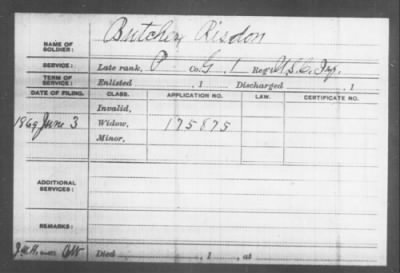 Butcher, Risdon
NAME OF SOLDIER:
SERVICE: Late rank, P Co. G, 1 Reg't U.S.C. Inf.
TERM OF SERVICE: Enlisted , 1 Discharged , 1
DATE OF FILING. CLASS. APPLICATION NO. LAW. CERTIFICATE NO.
Invalid,
1869 June 3 Widow, 175875
Minor,
ADDITIONAL SERVICES:
REMARKS:
Died , 1 , at